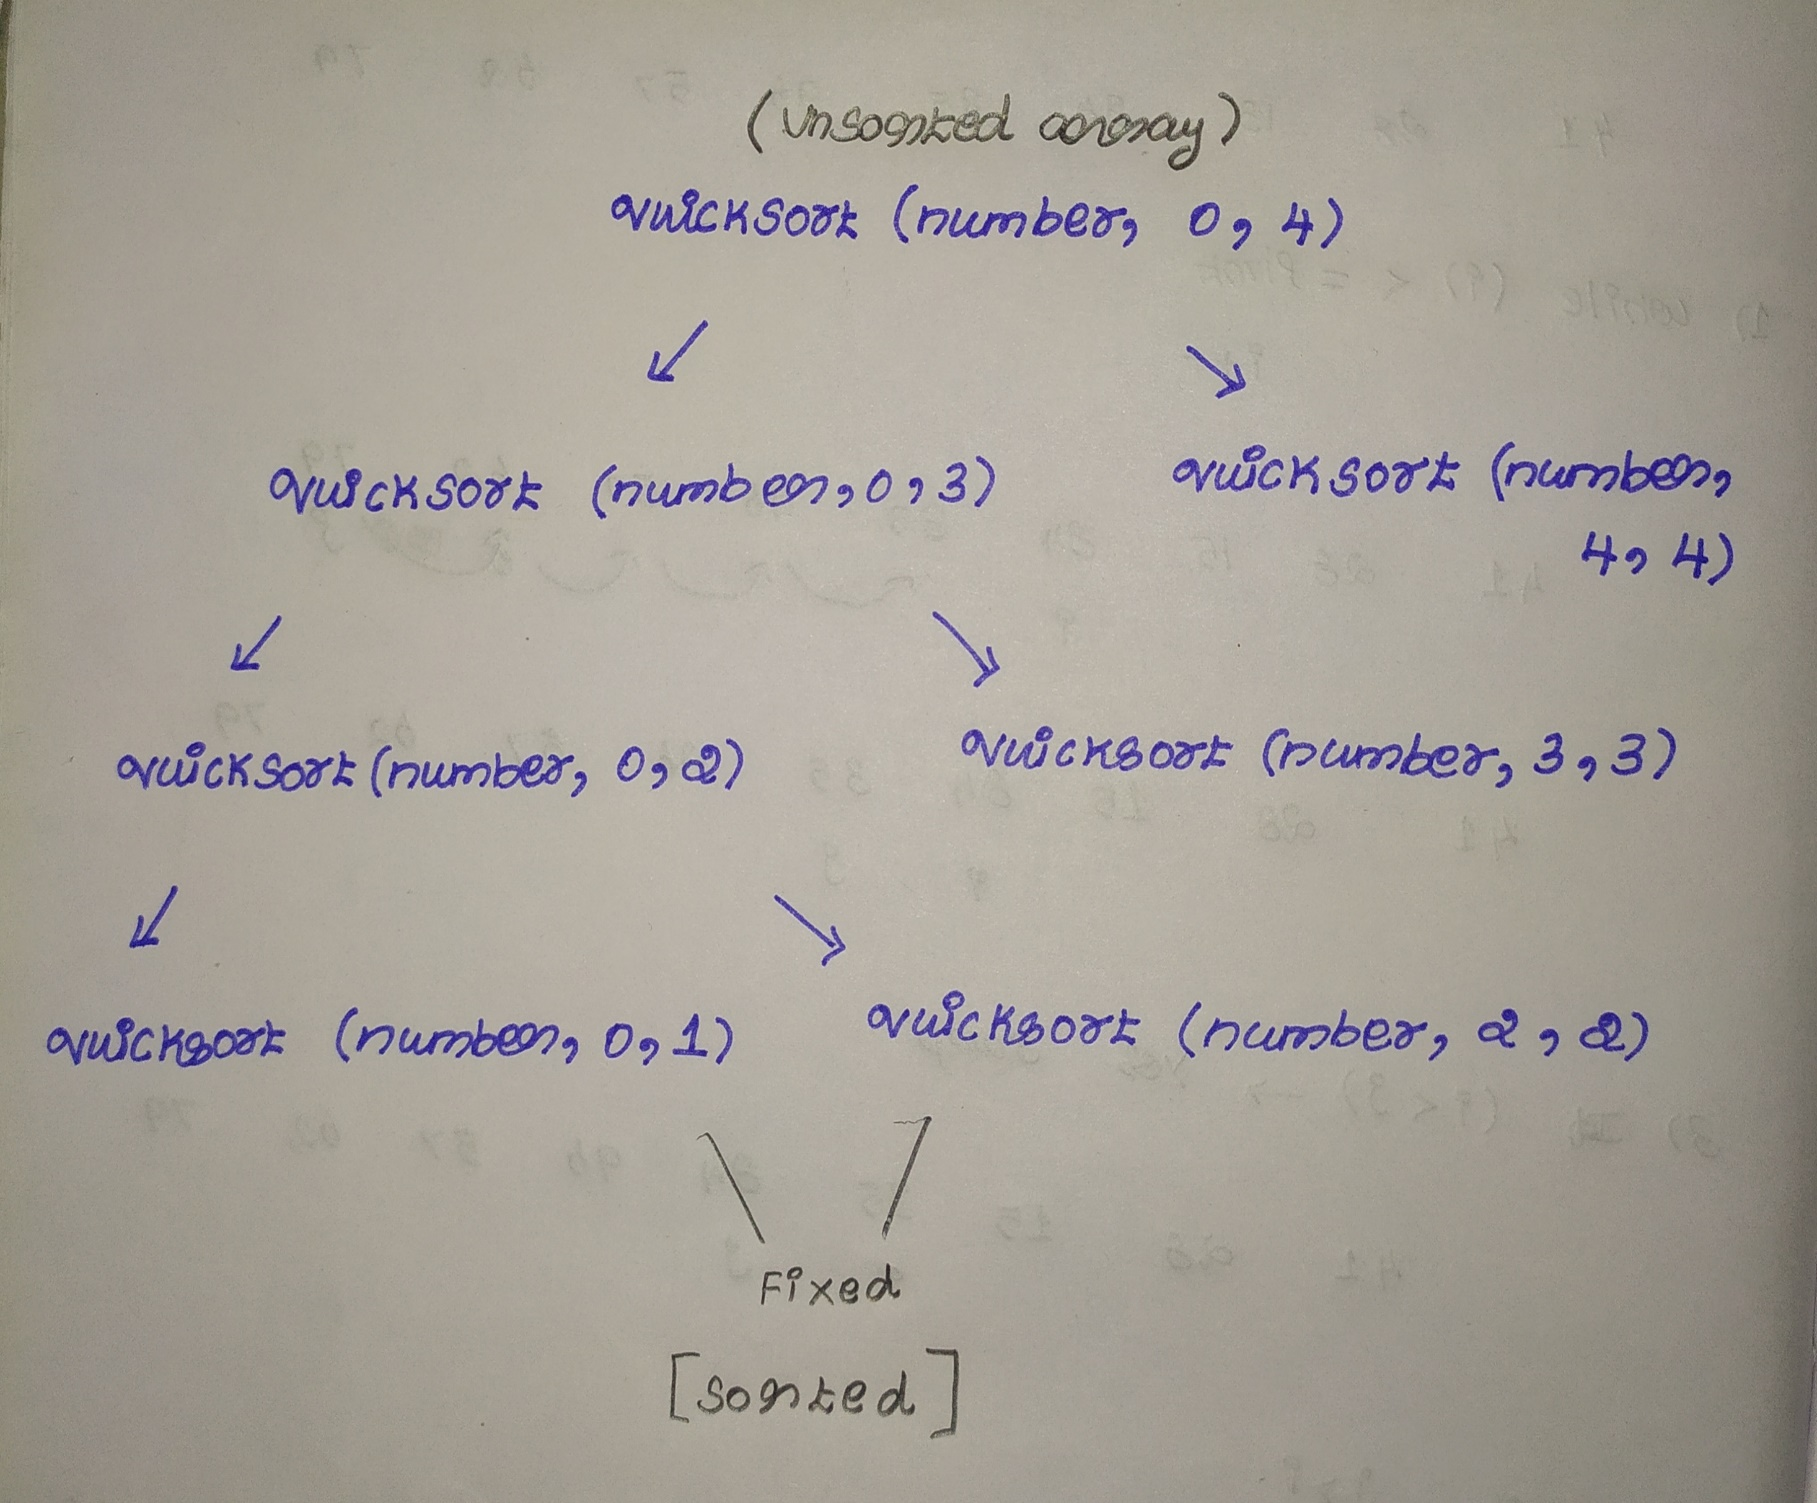 (Unsorted array)
quicksort (number, 0, 4)
quicksort (number, 0, 3)
quicksort (number,
4, 4)
quicksort (number, 0, 2)
quicksort (number, 3, 3)
quicksort (number, 0, 1)
quicksort (number, 2, 2)
Fixed
[sorted]